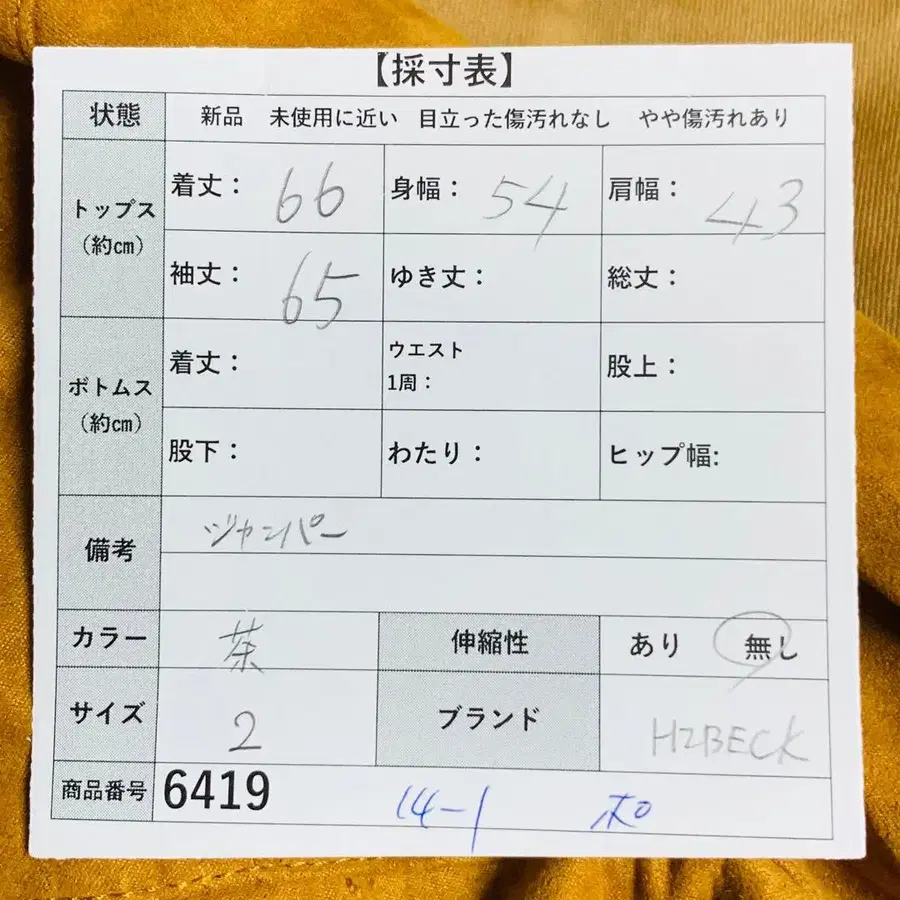 【採寸表】
状態 新品 未使用に近い 目立った傷汚れなし やや傷汚れあり
トップス（約㎝） 着丈： 66 身幅： 54 肩幅： 43
袖丈： 65 ゆき丈： 総丈：
ボトムス（約㎝） 着丈： ウエスト1周： 股上：
股下： わたり： ヒップ幅:
備考 ジャンパー
カラー 茶 伸縮性 あり 無し
サイズ 2 ブランド HZBECK
商品番号 6419 14-1